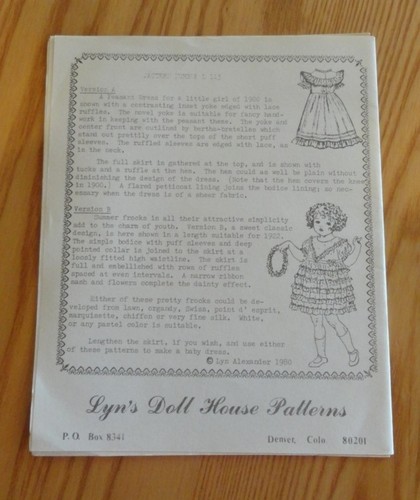 Version A
A Peasant Dress for a little girl of 1906 is
shown with a contrasting inset yoke edged with lace
ruffles. The novel yoke is suitable for fancy hand-
work in keeping with the peasant theme. The yoke and
center front are outlined by bertha-bretelles which
stand out prettily over the tops of the short puff
sleeves. The ruffled sleeves are edged with lace, as
is the neck.
The full skirt is gathered at the top, and is shown with
tucks and a ruffle at the hem. The hem could as well be plain without
diminishing the design of the dress. (Note that the hem covers the knee
in 1906.) A flared petticoat lining joins the bodice lining; so nec-
essary when the dress is of a sheer fabric.
Version B
Summer frocks in all their attractive simplicity
add to the charm of youth. Version B, a sweet classic
design, is here shown in a length suitable for 1922.
The simple bodice with puff sleeves and deep
pointed collar is joined to the skirt at a
loosely fitted high waistline. The skirt is
full and embellished with rows of ruffles
spaced at even intervals. A narrow ribbon
sash and flowers complete the dainty effect.
Either of these pretty frocks could be de-
veloped from lawn, organdy, Swiss, point d' esprit,
marquisette, chiffon or very fine silk. White,
or any pastel color is suitable.
Lengthen the skirt, if you wish, and use either
of these patterns to make a baby dress.
© Lyn Alexander 1980
Lyn's Doll House Patterns
P.O. Box 8341 Denver, Colo 80201